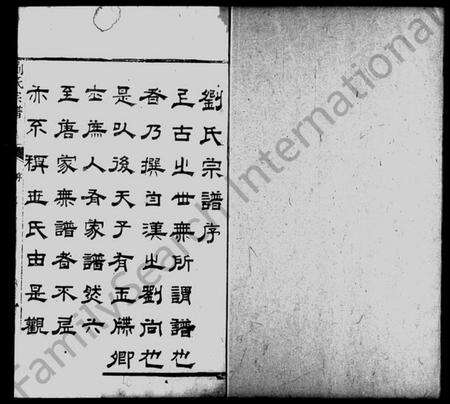 劉氏宗譜序
上古之世無所謂譜也
者乃撰自漢之劉向也
是以後天子有玉牒卿
士庶人有家譜然六
至唐家無譜者不
亦不稱世氏由是觀
劉氏宗譜
序
FamilySearch International